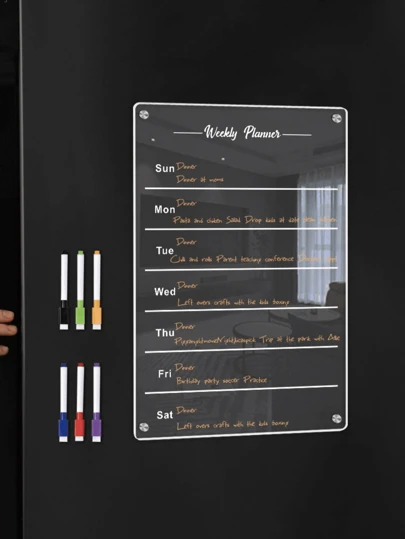 Weekly Planner
Sun Dinner
Dinner at moms
Mon Dinner
Pasta and chicken Salad Drop kids at
Tue Dinner
Chili and rolls Parent teacher conference
Wed Dinner
Left overs crafts with the kids
Thu Dinner
Trip at the park with
Fri Dinner
Birthday party soccer Practice
Sat Dinner
Left overs crafts with the kids